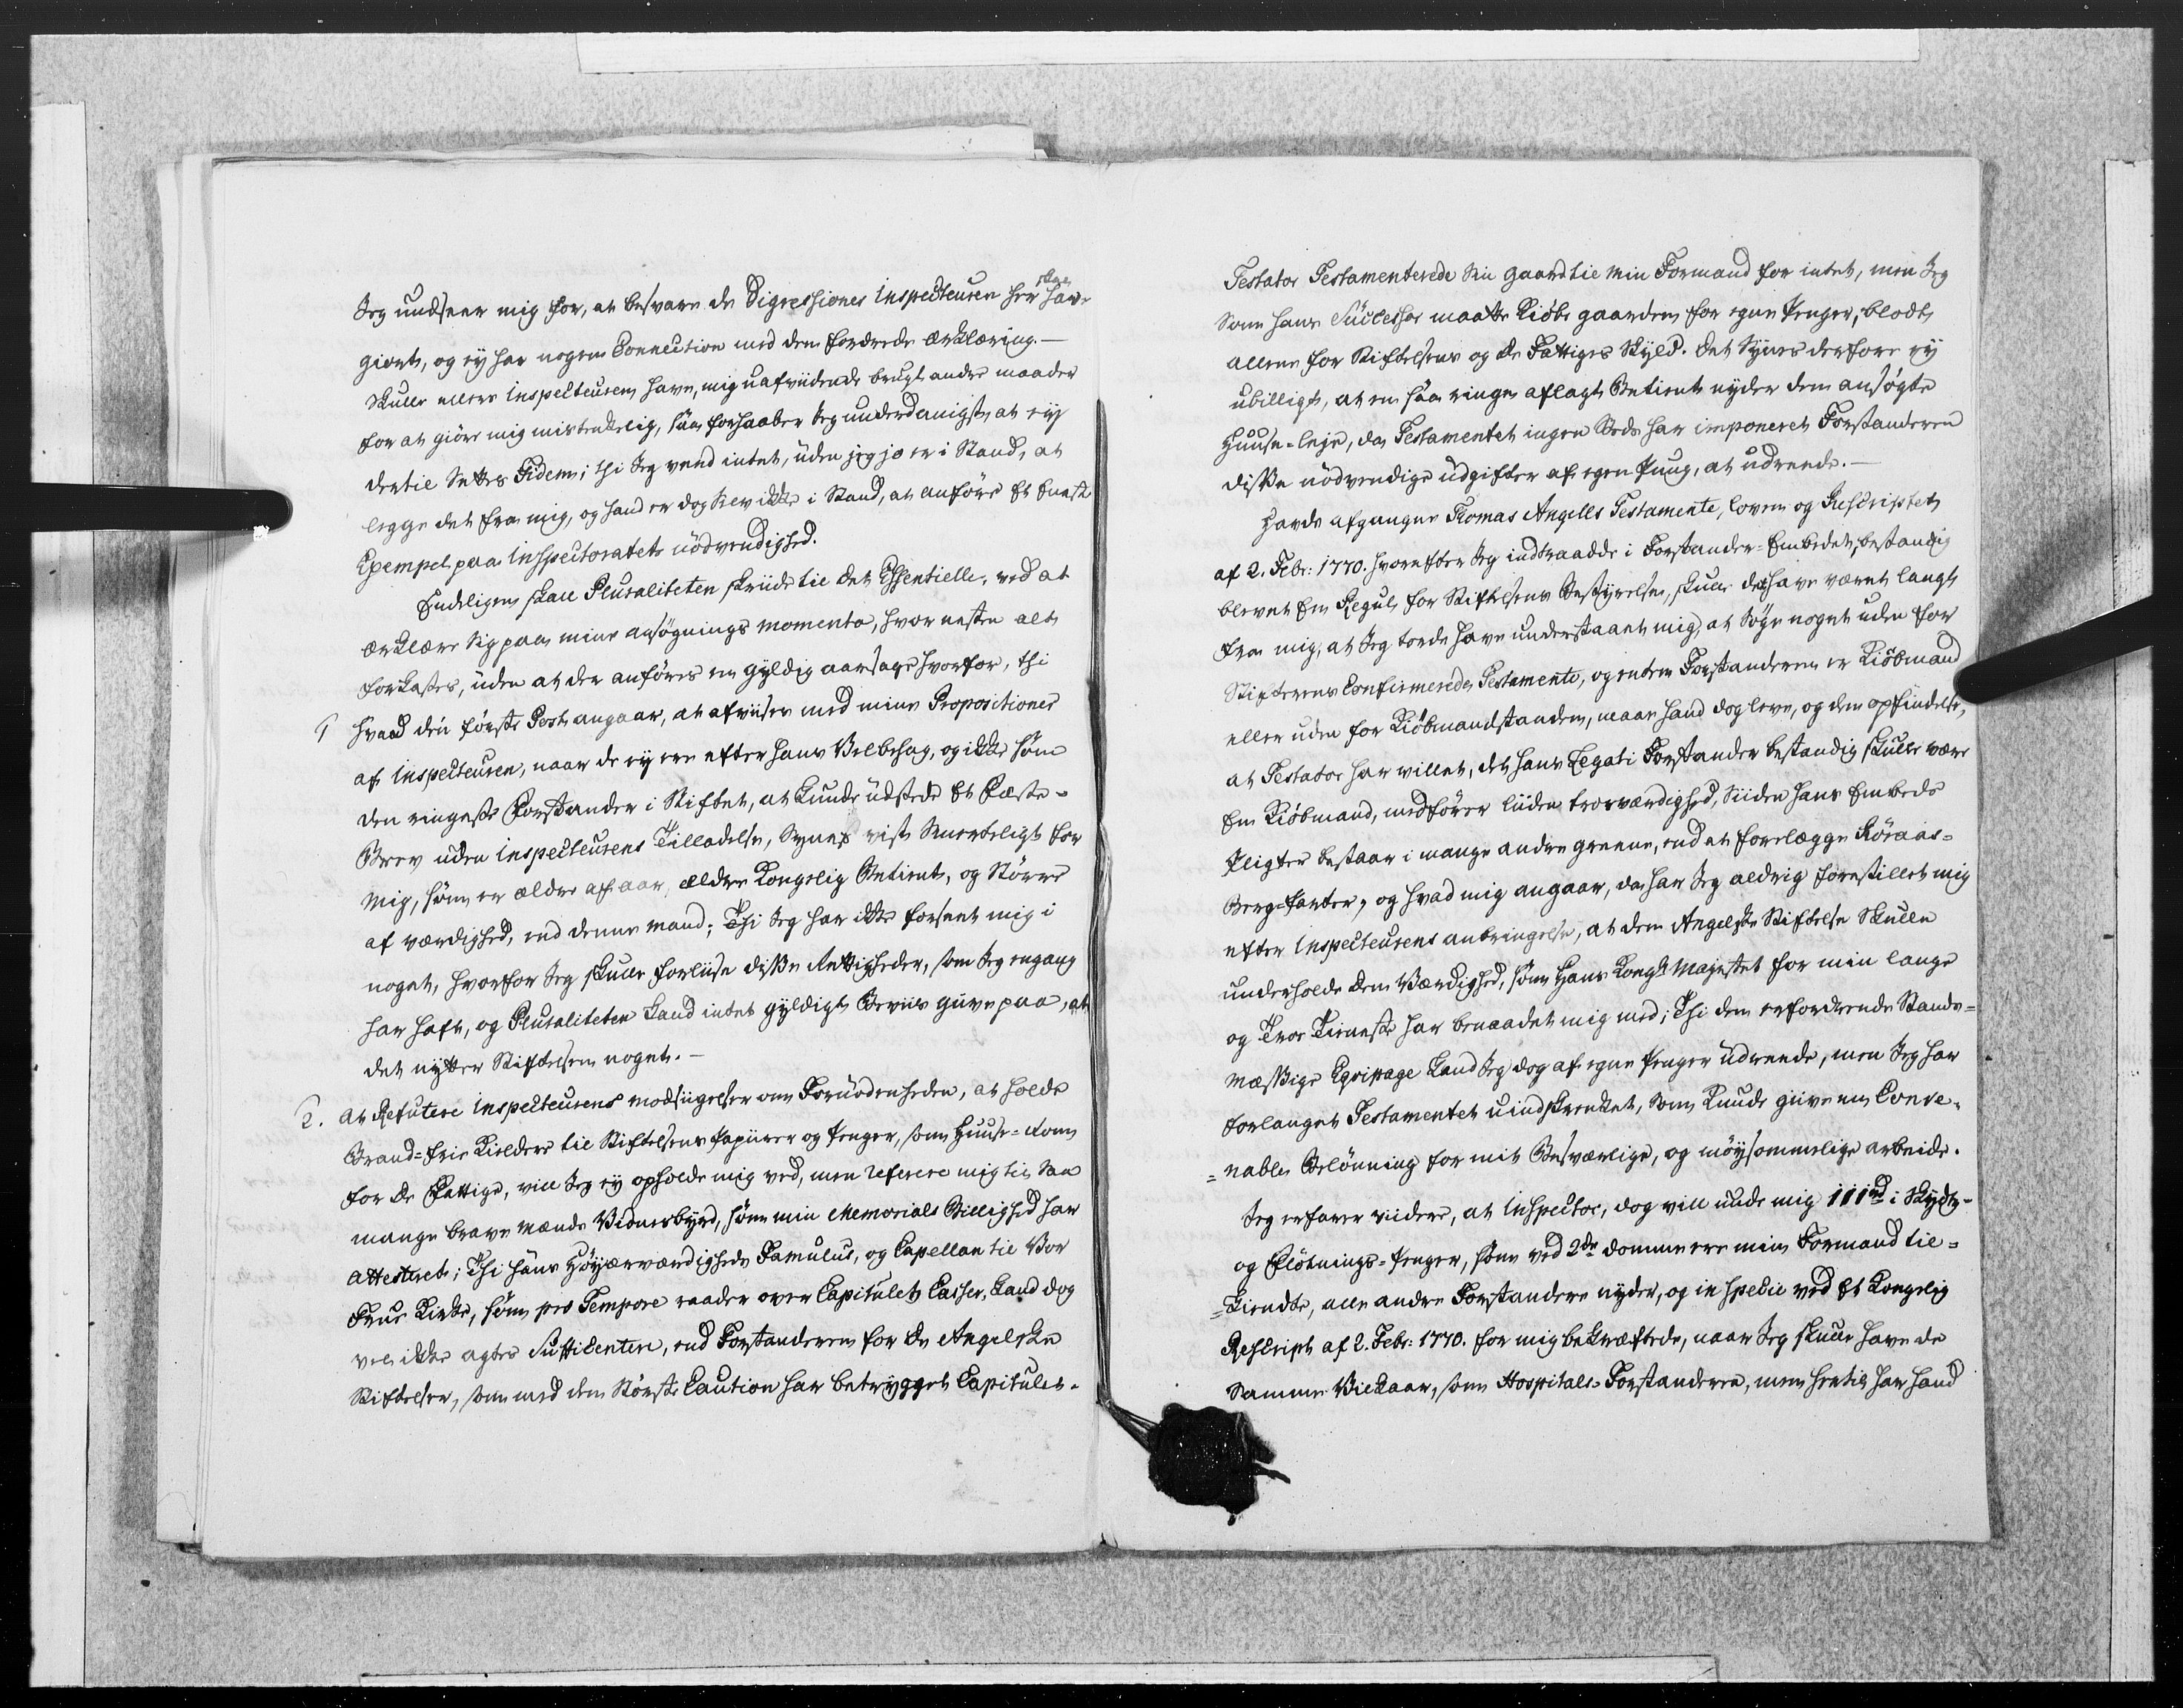 Jeg undseer mig for, at besvare de Digressioner Inspecteuren her har
giort, og ey har nogen Connection med den fordrede Erklæring. —
Skulle ellers Inspecteuren have, mig uafvidende brugt andre maader
for at giøre mig mistenkelig, saa forhaaber Jeg underdanigst, at ey
dertil Settes Fidem; thi Jeg veed intet, uden jeg jo er i Stand, at
legge det fra mig, og hand er dog ikke i Stand, at anføre Et Eneste
Exempel paa Inspectoratets nødvendighed.
Endeligen skall Pluraliteten skride til det Essentielle, ved at
Erklære Sig paa mine ansøgnings momenta, hvor nesten alt
forkastes, uden at der anføres en gyldig aarsage hvorfor, thi
1 hvad den første Post angaar, at afvises med mine Propositioner
af Inspecteuren, naar de ey ere efter hans Velbehag, og ikke som
den ringeste Forstander i Stiftet, at kunde udstede Et Fæste-
Brev uden Inspecteurens Tilladelse, Synes vist Smerteligt for
mig, som er ældre af aar, ældre Kongelig Betient, og Større
af værdighed, end denne mand; Thi Jeg har ikke forseet mig i
noget, hvorfor Jeg skulle forliise disse Rettigheder, som Jeg engang
har haft, og Pluraliteten kand intet gyldigt Beviis give paa, at
det nytter Stiftelsen noget. —
2. At Refutere Inspecteurens modsigelser om Fornødenheden, at holde
Brand-frie Kieldere til Stiftelsens Papiirer og Penger, som Huuse-Rom
for de Fattige, vill Jeg ey opholde mig ved, men referere mig til Saa
mange brave Mænds Vidnesbyrd, som min Memorials Billighed har
attesteret; Thi hans Høyærværdigheds Famulus, og Capellan til Vor
Frue Kirke, som pro Tempore raader over Capitulets Casser, kand dog
vel ikke agtes Sufficentere, end Forstanderen for de Angelske
Stiftelser, som med den Største Caution har betrygget Capitulet.
Testator Testamenterede Sin gaard til min Formand for intet, men Jeg
Som hans Successor maatte Kiøbe gaarden for egne Penger, blodt
allene for Stiftelsens og de Fattiges Skyld. Det Synes derfore ey
ubilligt, at en saa ringe aflagt Betient nyder den ansøgte
Huuse-leje, da Testamentet ingen Steds har imponeret Forstanderen
disse nødvendige udgifter af egen Pung, at udreede. —
Havde afgangne Thomas Angells Testamente, loven og Rescriptet
af 2. Febr: 1770. hvorefter Jeg indtraadde i Forstander-Embedet, bestandig
blevet Em Regul for Stiftelsens Bestyrelse, skulle det have været langt
fra mig, at Jeg torde have understaaet mig, at Søge noget uden for
Stifterens Confirmerede Testamente, og enten Forstanderen er Kiøbmand
eller uden for Kiøbmandstanden, maae hand dog leve, og den opfindelse,
at Testator har villet, at hans Legati Forstander bestandig skulle være
En Kiøbmand, medfører liiden troværdighed, Siiden hans Embeds
Pligter bestaar i mange andre greene, end at forelægge Røraas-
Berg-Parter, og hvad mig angaar, da har Jeg aldrig forestillet mig
efter Inspecteurens anbringelse, at den Angelske Stiftelse Skulle
underholde den Værdighed, som Hans Kongl: Majestet for min lange
og Troe Tieneste har benaadet mig med; Thi den erfordrende Stands-
mæssige Eqvipage kand Jeg dog af egne Penger udreede, men Jeg har
forlanget Testamentet uindskrenket, som kunde give en Conve-
=nable Belønning for mit Besværlige, og møysommelige arbeide.
Jeg erfarer viidere, at Inspector, dog vill unde mig i Skyds-
og Fløtnings-Penger, som ved 2de domme ere min Formand til-
=kiendte, alle andre Forstandere nyder, og in specie ved Et Kongelig
Rescript af 2. Febr: 1770. for mig bekræftede, naar Jeg skulle have de
Samme Vilkaar, som Hospitals-Forstanderen, men hertil har hand